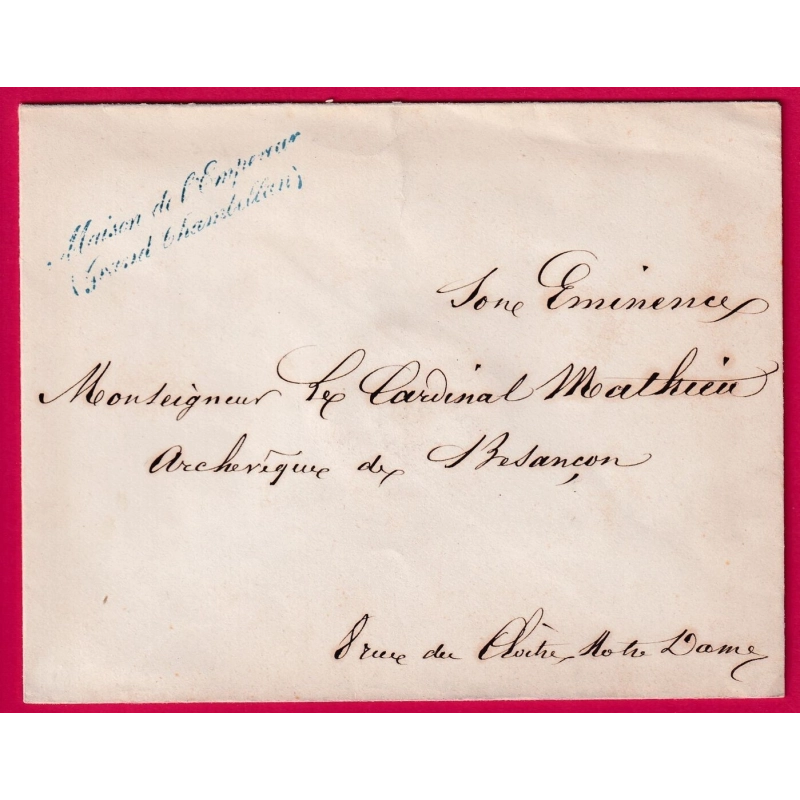 Maison de l'Empereur
(Grand Chambellan)
Son Eminence
Monseigneur Le Cardinal Mathieu
Archevêque de Besançon
8 rue du Cloître Notre Dame